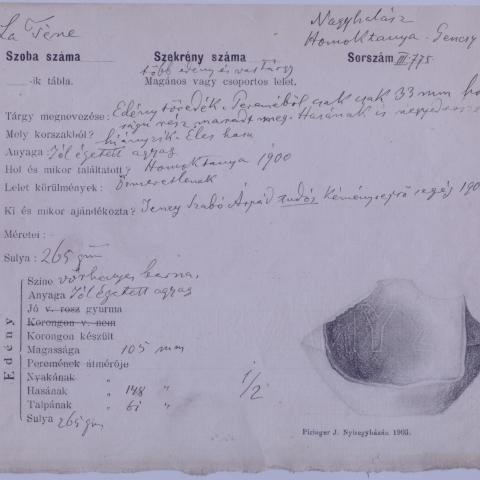 La Tène
Nagyhalász
Homoktanya - Gencsy
Szoba száma
Szekrény száma
Sorszám III.775
több edény és vastárgy
-ik tábla.
Magános vagy csoportos lelet.
Tárgy megnevezése: Edény töredék. Pereméből csak csak 33 mm ho
ságu rész maradt meg. Hasának is negyedrésze
Mely korszakból? hiányzik. Éles hasu
Anyaga: Jól égetett agyag
Hol és mikor találtatott? Homoktanya 1900
Lelet körülmények: Ismeretlenek
Ki és mikor ajándékozta? Jency Szabó Árpád tudós Kéményseprő segéd 190
Méretei:
Sulya: 265 gm
Edény
Szine vörhenyes barna.
Anyaga Jól égetett agyag
Jó v. rosz gyurma
Korongon v. nem
Korongon készült
Magassága 105 mm
Peremének átmérője
Nyakának "
Hasának " 148 "
Talpának " 61 "
1/2
Sulya 265 gm
Piringer J. Nyiregyházán 1903.